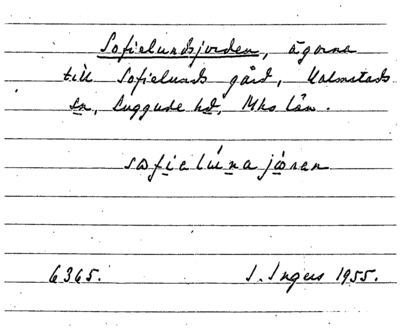 Sofielundsjorden, ägorna
till Sofielunds gård, Halmstads
sn, Luggude hd, Mhs län.
sofielúnajåren
6365. I. Ingers 1955.